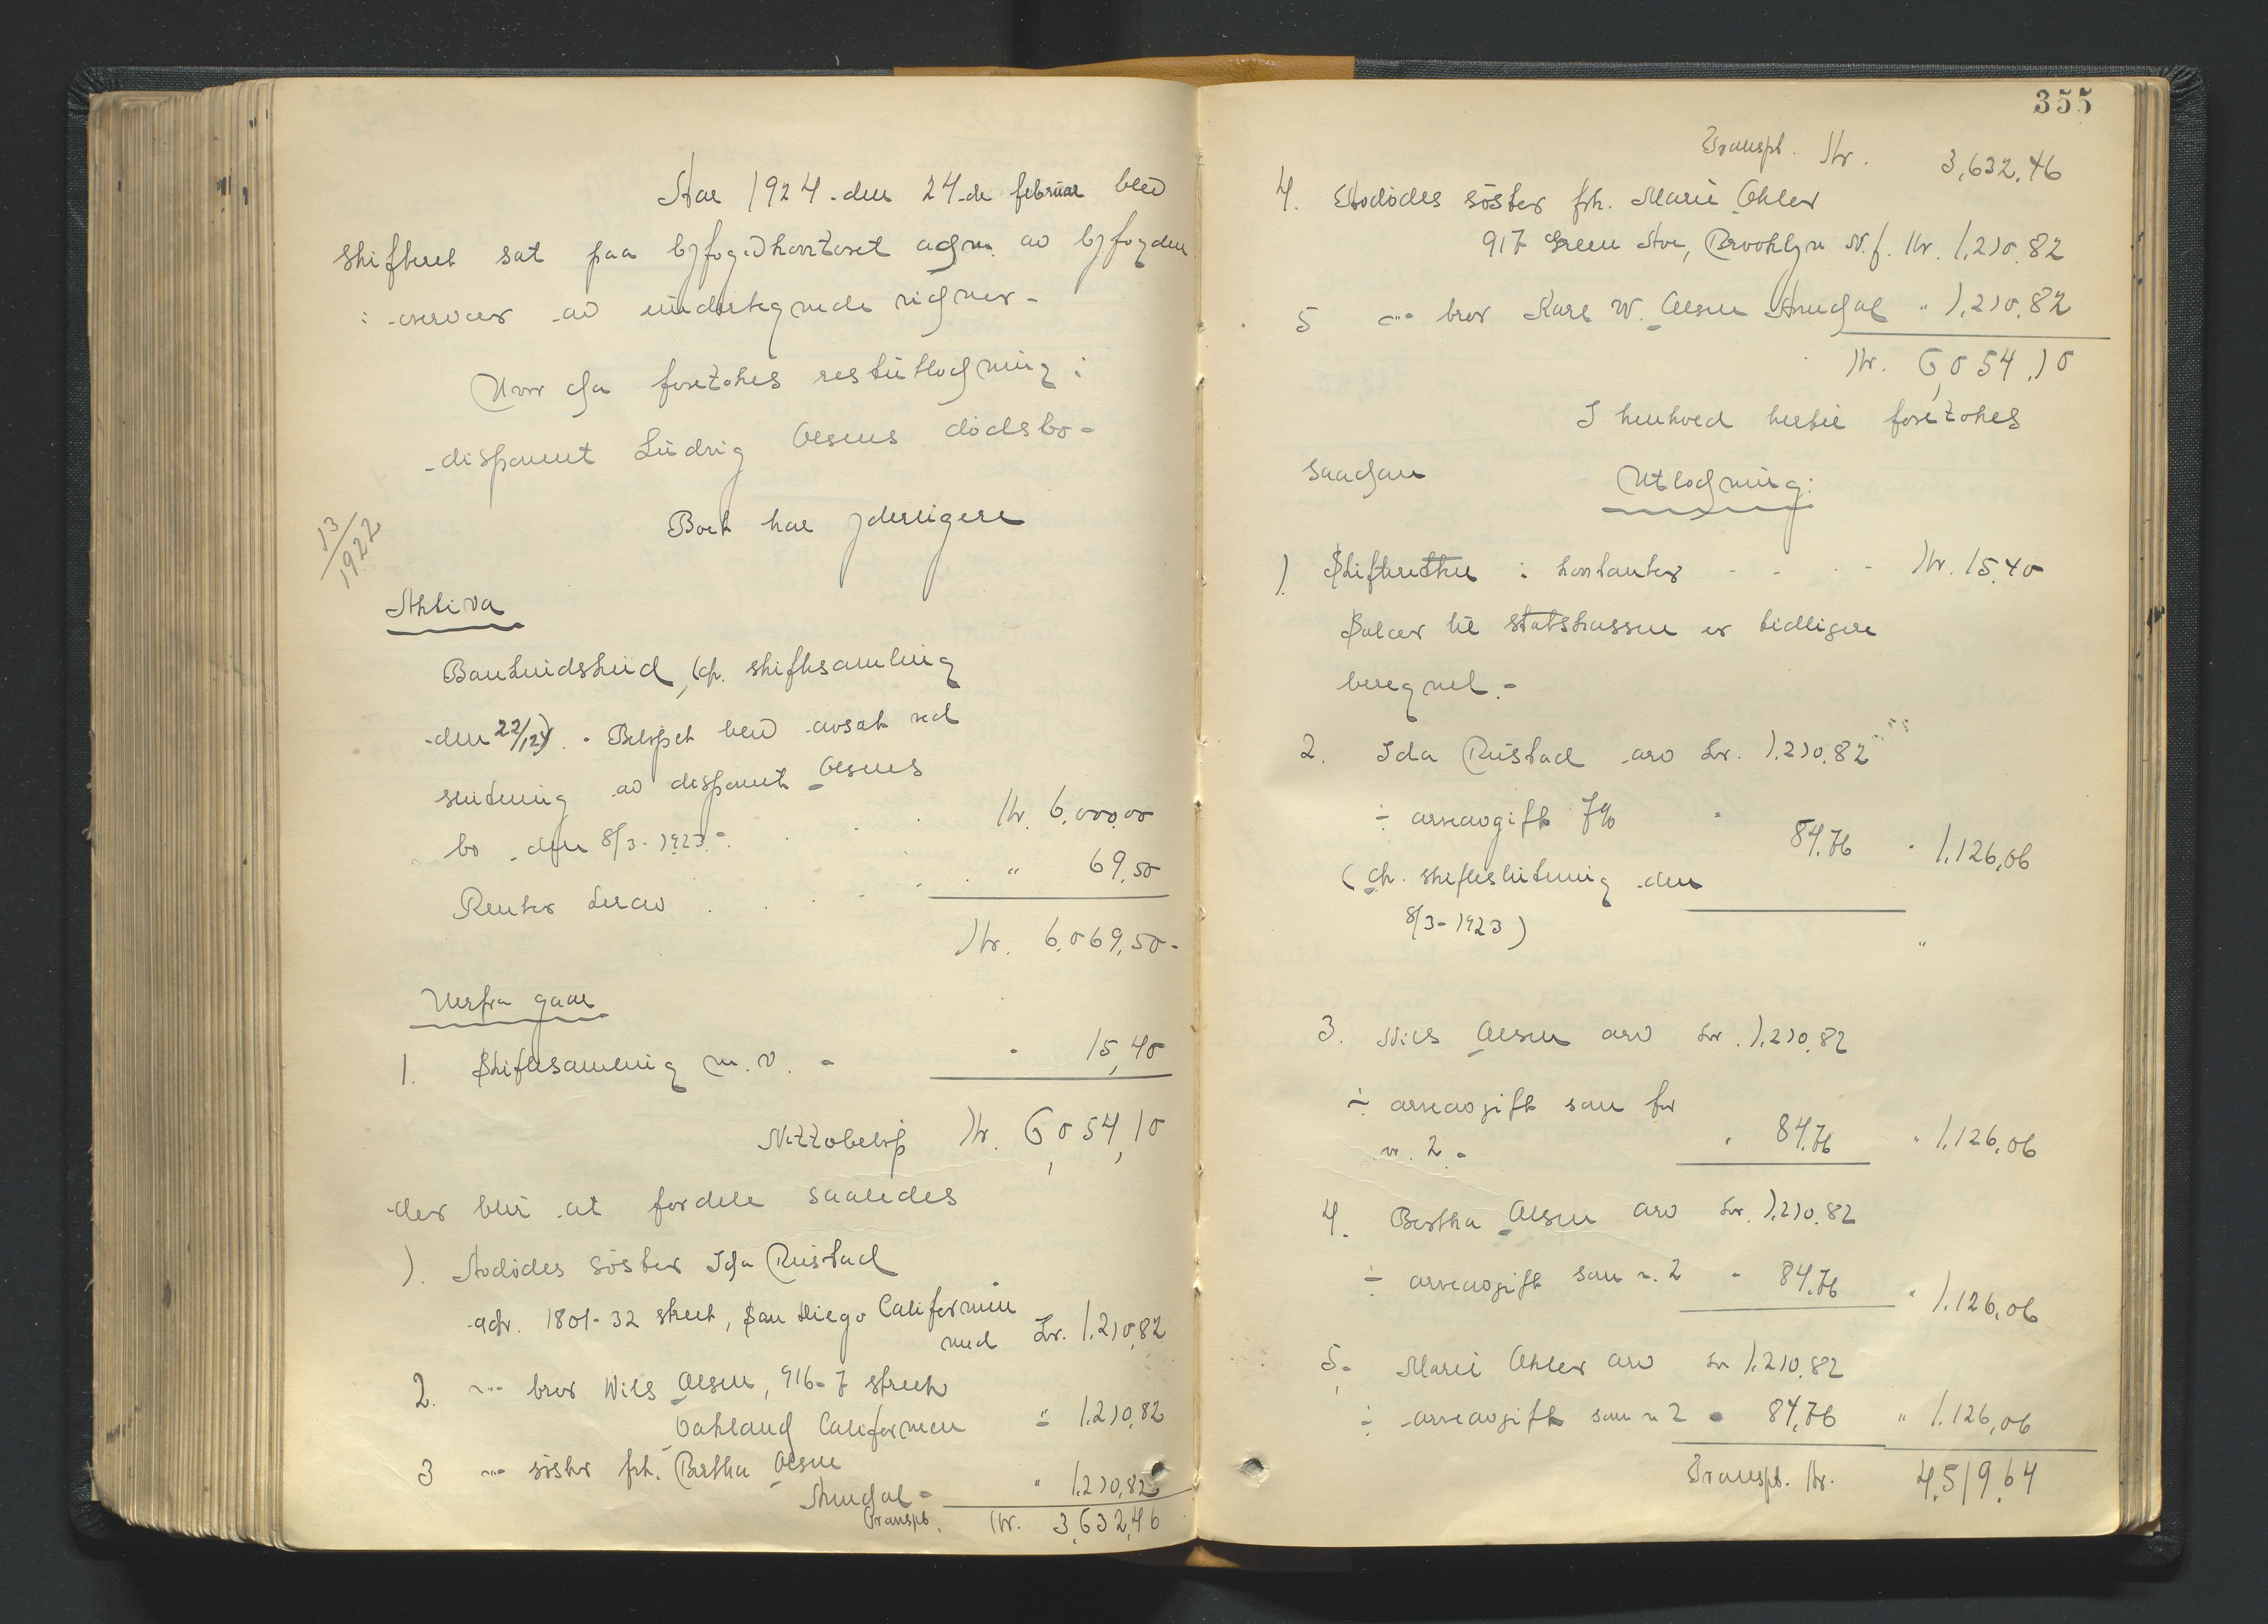 Aar 1924 den 24-de februar blev
skifteret sat paa byfogedkontoret adm. av byfogden
i nærvær av undertegnede vidner -
Hvor da foretokes restutlodning i
disponent Ludvig Olsens dødsbo -
13/1922
Boet har yderligere
Aktiva
Bankindskud, (cfr. skiftesamling
den 22/12). - Beløpet blev avsat ved
slutning av disponent Olsens
bo den 8/3-1923 - . . . kr. 6,000,00
Renter derav . . . . " 69,50
kr. 6,069,50 -
Herfra gaar
1. Skiftesamling m.v. - " 15,40
Nettobeløp kr. 6,054,10
der blir at fordele saaledes
1. Avdødes søster Ida Rustad
adr. 1801-32 street, San Diego Californien
med kr. 1.210,82
2. -"- bror Nils Olsen, 916-7 street
Oakland Californien " 1.210,82
3 -"- søster frk. Bertha Olsen
Arendal - " 1.210,82
Transpt. kr. 3,632,46
355
Transpt. kr. 3,632,46
4. Avdødes søster frk. Marie Ohler
917 Green Ave, Brooklyn N.Y. kr. 1.210,82
5 -"- bror Karl W. Olsen Arendal " 1.210,82
kr. 6,054,10
I henhold hertil foretokes
saadan Utlodning:
1. Skifteretten i kontanter - - - - kr. 15,40
Salær til statskassen er tidligere
beregnet. -
2. Ida Rustad arv kr. 1.210,82
÷ arveavgift 7% " 84,76 " 1.126,06
(cfr. skifteslutning den
8/3-1923) "
3. Nils Olsen arv kr. 1.210,82
÷ arveavgift som for
nr. 2. - " 84,76 " 1.126,06
4. Bertha Olsen arv kr. 1.210,82
÷ arveavgift som n. 2 " 84,76 " 1.126,06
5. Marie Ohler arv kr 1.210,82
÷ arveavgift som n 2 " 84,76 " 1.126,06
Transpt. kr. 4,519,64